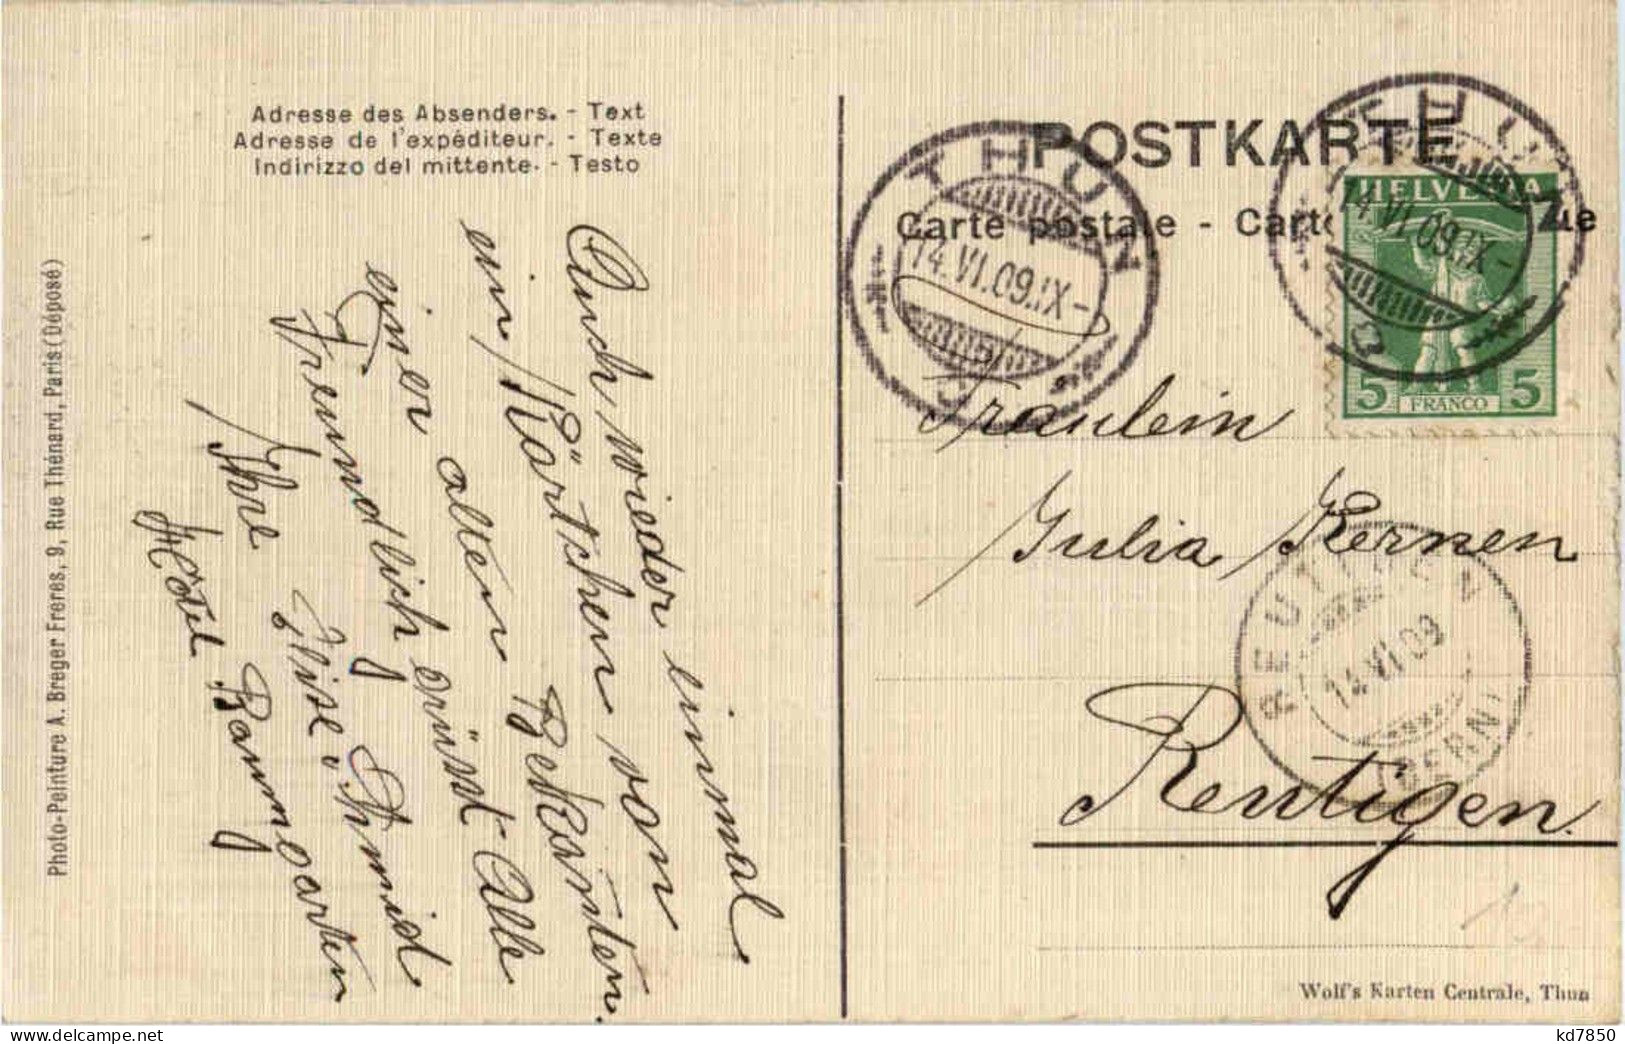 Adresse des Absenders. - Text
Adresse de l'expéditeur. - Texte
Indirizzo del mittente. - Testo
Auch wieder einmal
ein Kärtchen von
einer alten Bekannten.
Freundlich grüsst Alle
Ihre Elise Schmid
Hôtel Baumgarten
Photo-Peinture A. Breger Freres, 9, Rue Thénard, Paris (Déposé)
POSTKARTE
Carte postale - Carto
THUN
14.VI.09.IX-
THUN
14.VI.09.IX-
HELVETIA
5 FRANCO 5
Fräulein
Julia Kernen
Reutigen.
REUTIGEN
14.VI.09
(BERN)
Wolf's Karten Centrale, Thun
kd7850